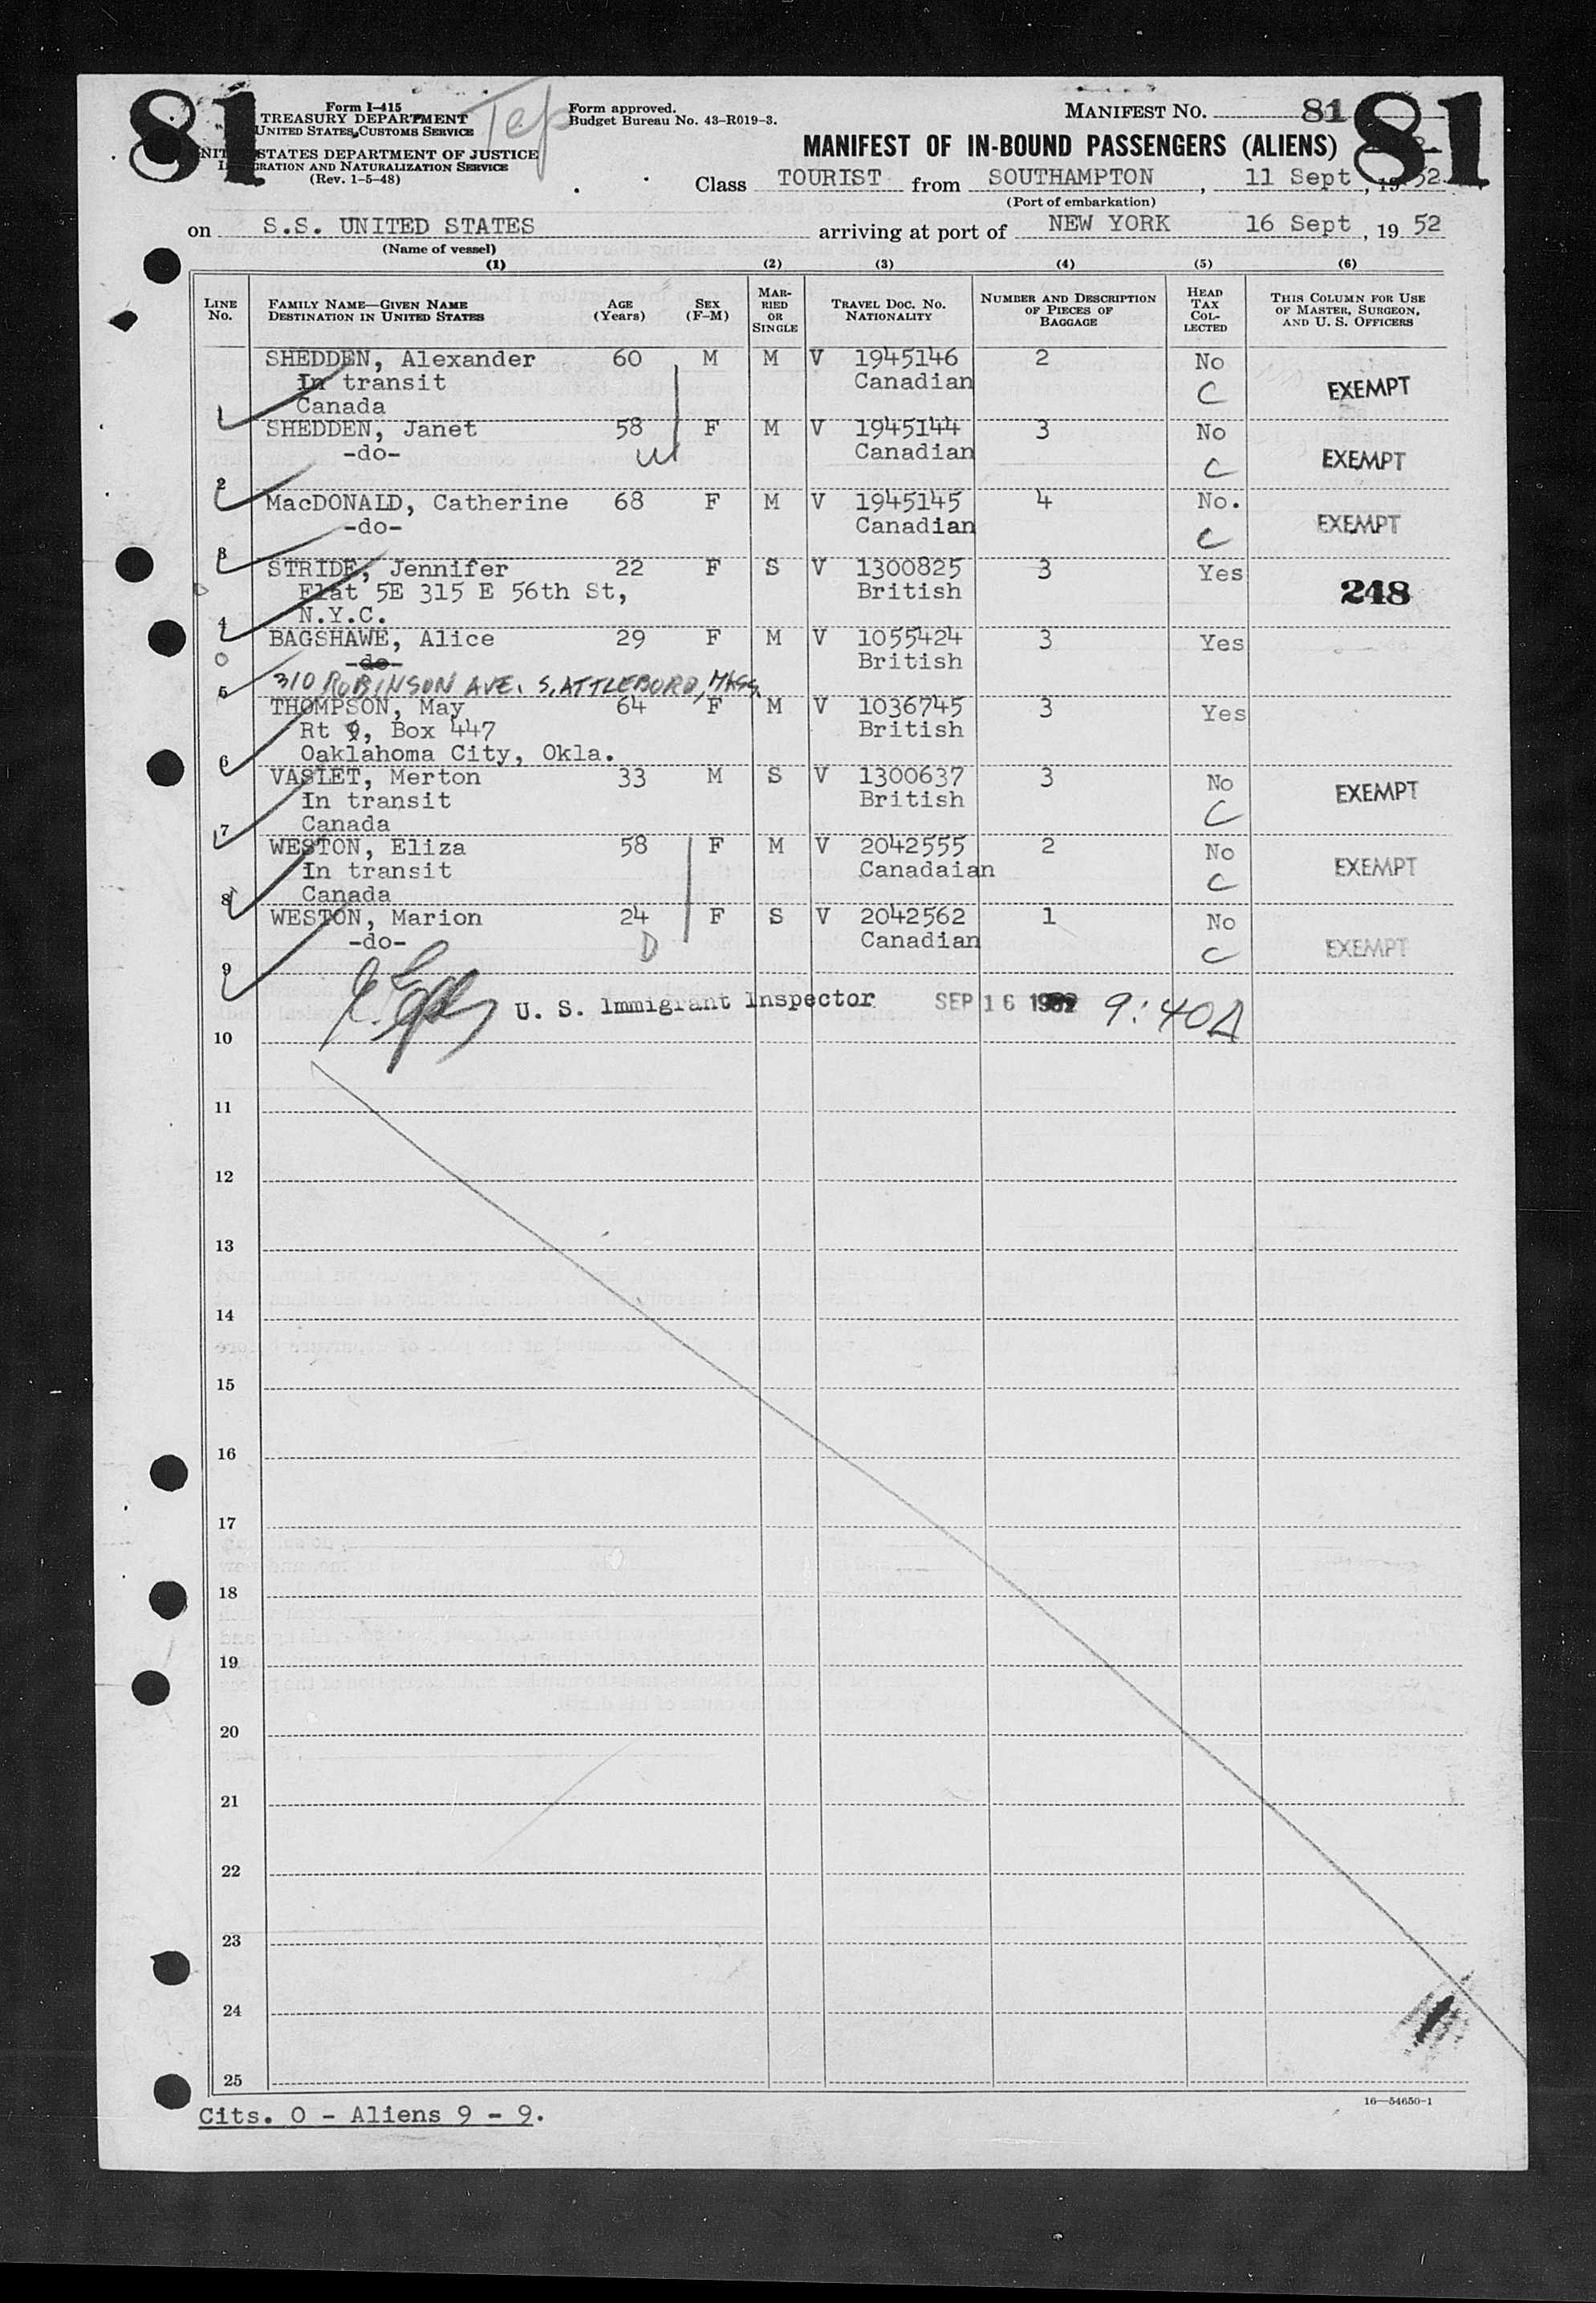 81
Form I-415
TREASURY DEPARTMENT
UNITED STATES CUSTOMS SERVICE
STATES DEPARTMENT OF JUSTICE
AND NATURALIZATION SERVICE
(Rev. 1-5-48)
Form approved.
Budget Bureau No. 43-R019-3.
MANIFEST NO. 81
81
MANIFEST OF IN-BOUND PASSENGERS (ALIENS)
Class TOURIST from SOUTHAMPTON, 11 Sept, 1952
(Port of embarkation)
on S.S. UNITED STATES arriving at port of NEW YORK 16 Sept, 1952
(Name of vessel)
(1) (2) (3) (4) (5) (6)
LINE No. FAMILY NAME—GIVEN NAME DESTINATION IN UNITED STATES AGE (Years) SEX (F-M) MARRIED OR SINGLE TRAVEL DOC. NO. NATIONALITY NUMBER AND DESCRIPTION OF PIECES OF BAGGAGE HEAD TAX COLLECTED THIS COLUMN FOR USE OF MASTER, SURGEON, AND U. S. OFFICERS
SHEDDEN, Alexander 60 M M V 1945146 2 No
In transit Canadian C EXEMPT
1 Canada
SHEDDEN, Janet 58 F M V 1945144 3 No
-do- Canadian C EXEMPT
2
MacDONALD, Catherine 68 F M V 1945145 4 No.
-do- Canadian C EXEMPT
3
STRIDE, Jennifer 22 F S V 1300825 3 Yes
Flat 5E 315 E 56th St, British 248
4 N.Y.C.
BAGSHAWE, Alice 29 F M V 1055424 3 Yes
-do- British
5 310 ROBINSON AVE. S. ATTLEBORO, MASS.
THOMPSON, May 64 F M V 1036745 3 Yes
Rt 9, Box 447 British
6 Oaklahoma City, Okla.
VASLET, Merton 33 M S V 1300637 3 No
In transit British C EXEMPT
7 Canada
WESTON, Eliza 58 F M V 2042555 2 No
In transit Canadaian C EXEMPT
8 Canada
WESTON, Marion 24 F S V 2042562 1 No
-do- D Canadian C EXEMPT
9
U. S. Immigrant Inspector SEP 16 1952 9:40A
10
11
12
13
14
15
16
17
18
19
20
21
22
23
24
25
16—54650-1
Cits. 0 - Aliens 9 - 9.